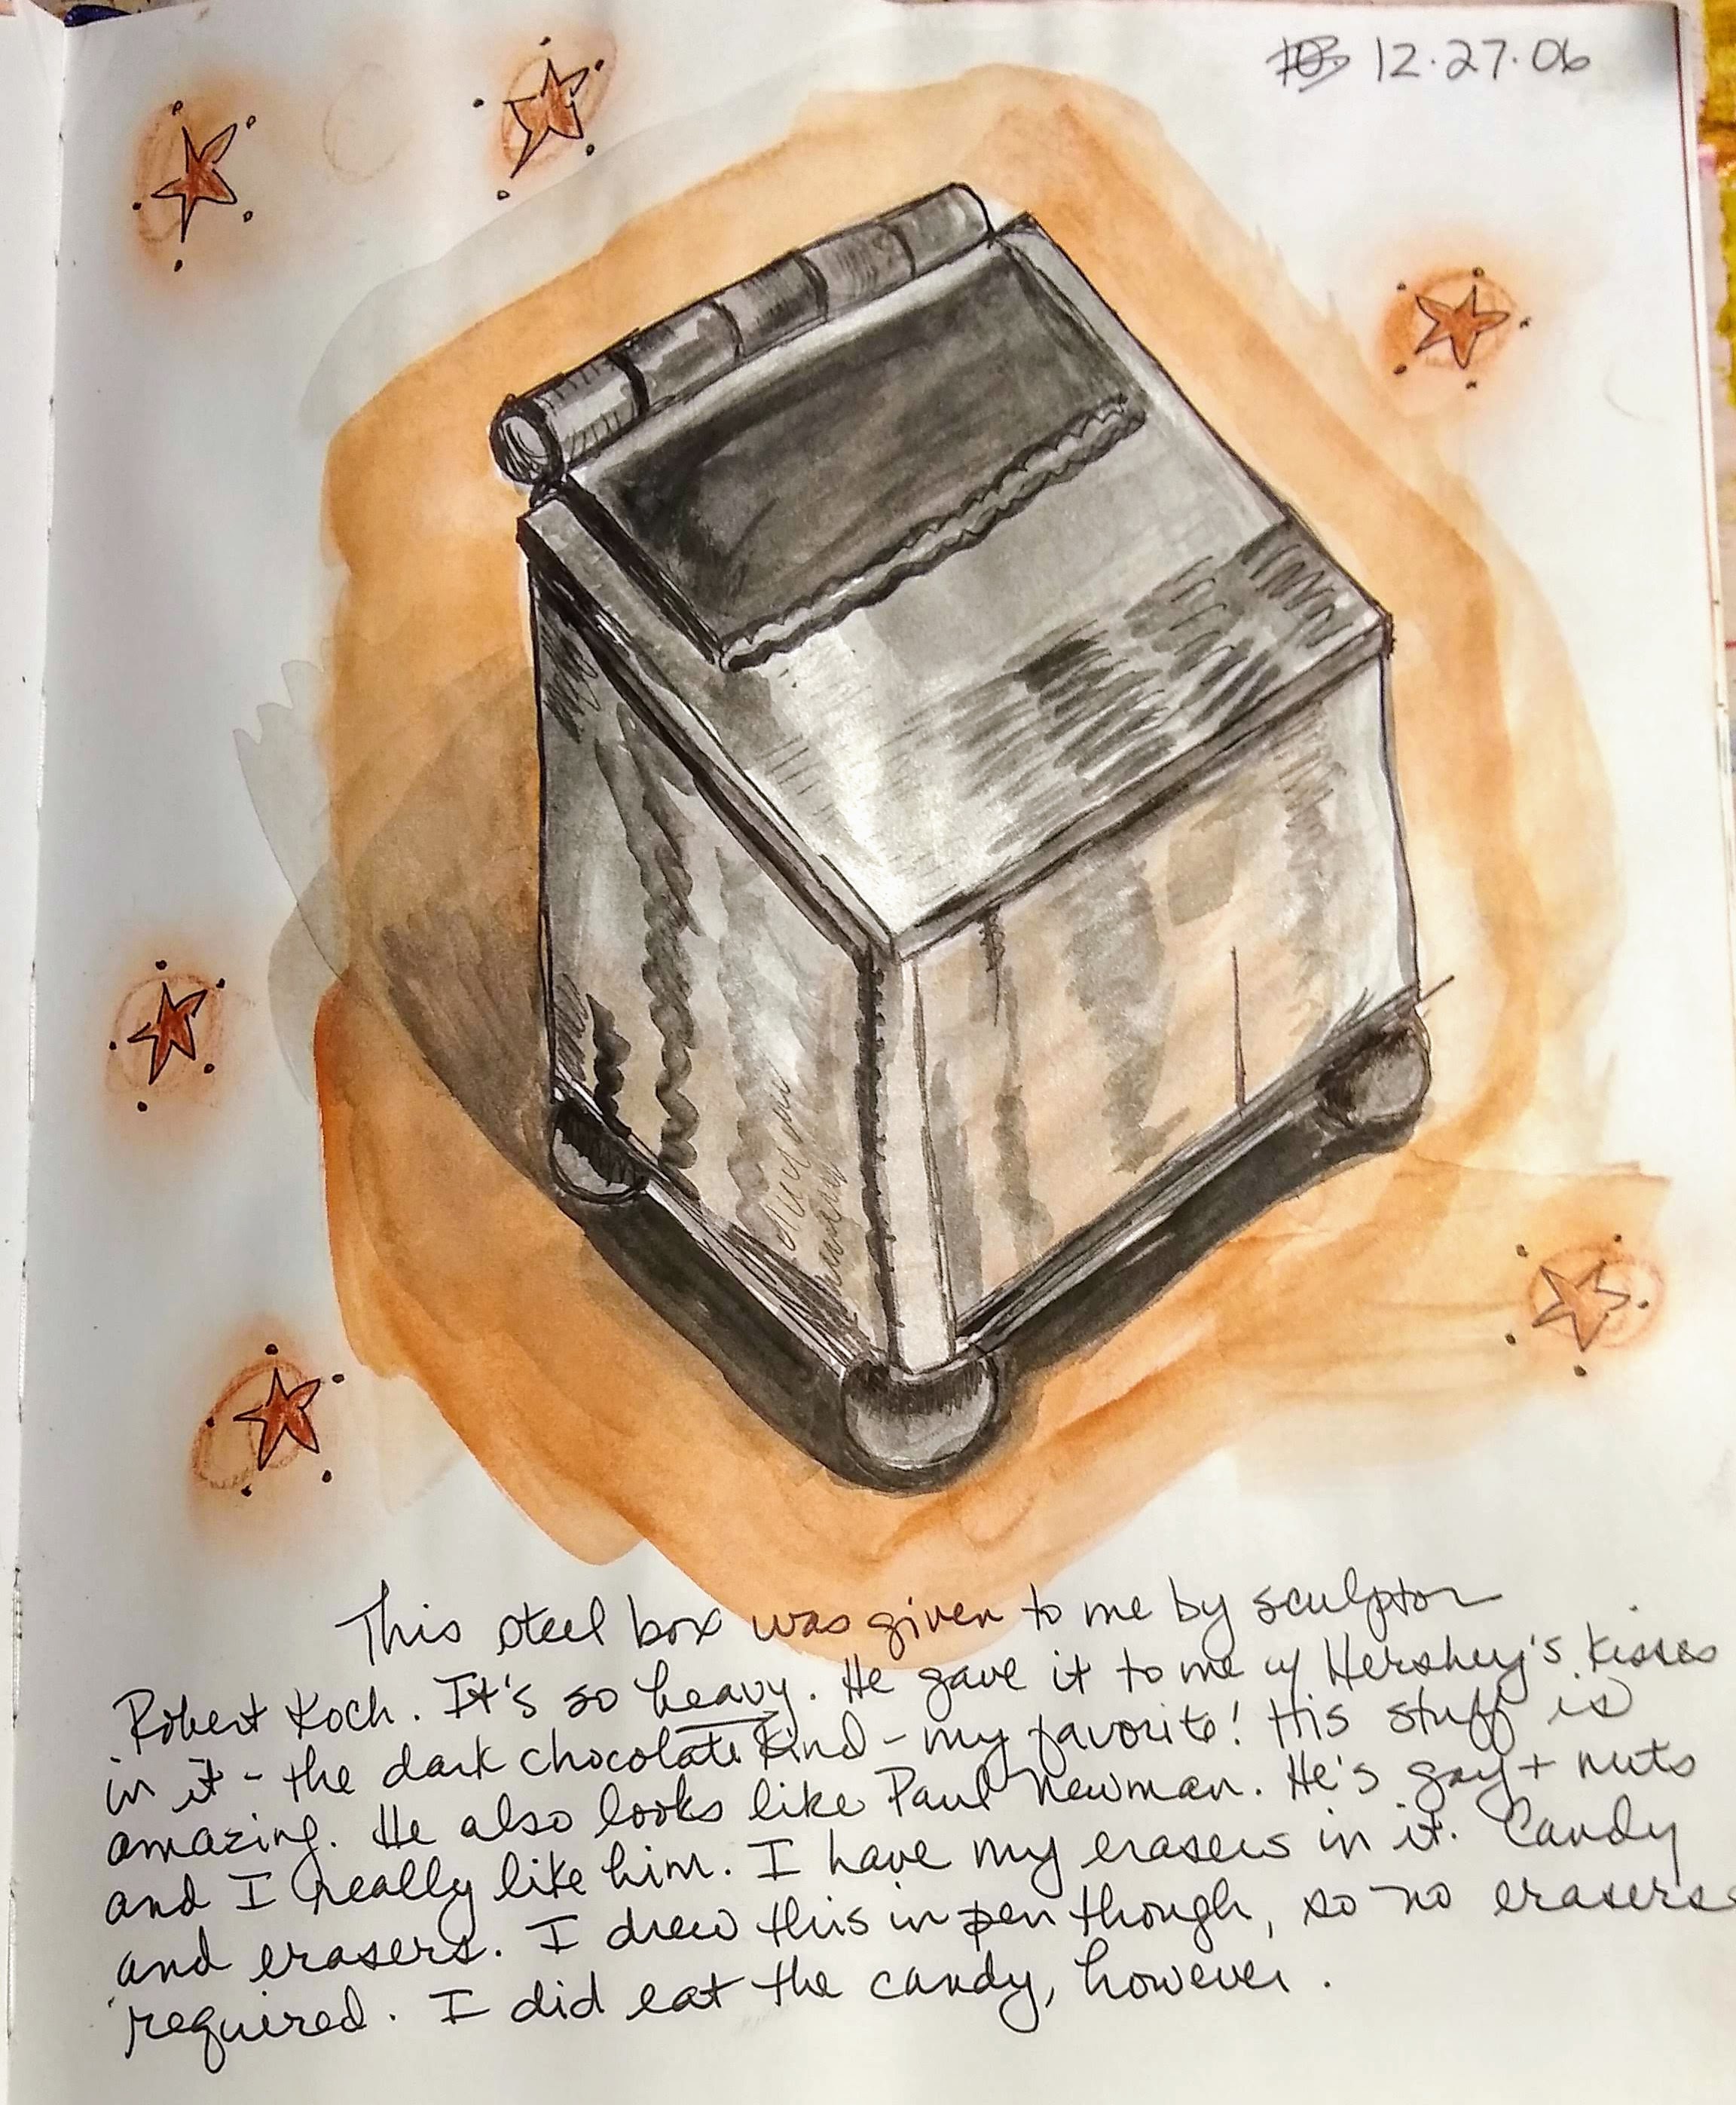 12.27.06
This steel box was given to me by sculptor
Robert Koch. It's so heavy. He gave it to me w/ Hershey's kisses
in it - the dark chocolate kind - my favorite! His stuff is
amazing. He also looks like Paul Newman. He's gay + nuts
and I really like him. I have my erasers in it. Candy
and erasers. I drew this in pen though, so no erasers
required. I did eat the candy, however.